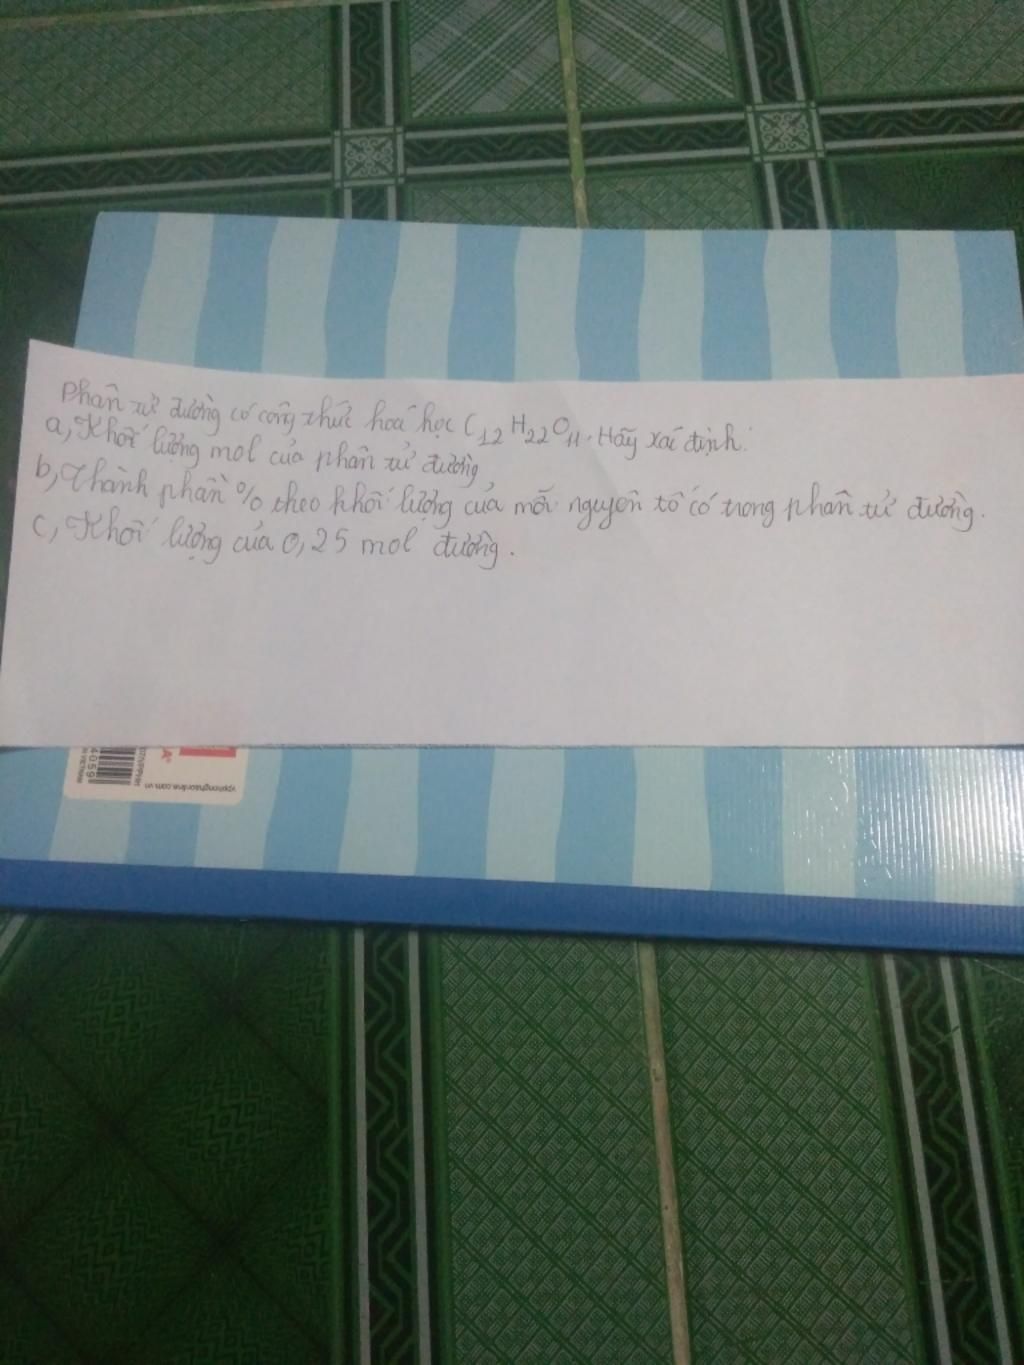 Phân tử đường có công thức hoá học C12H22O11. Hãy xác định:
a, Khối lượng mol của phân tử đường
b, Thành phần % theo khối lượng của mỗi nguyên tố có trong phân tử đường.
c, Khối lượng của 0,25 mol đường.
vpphongha​online.com.vn
4059